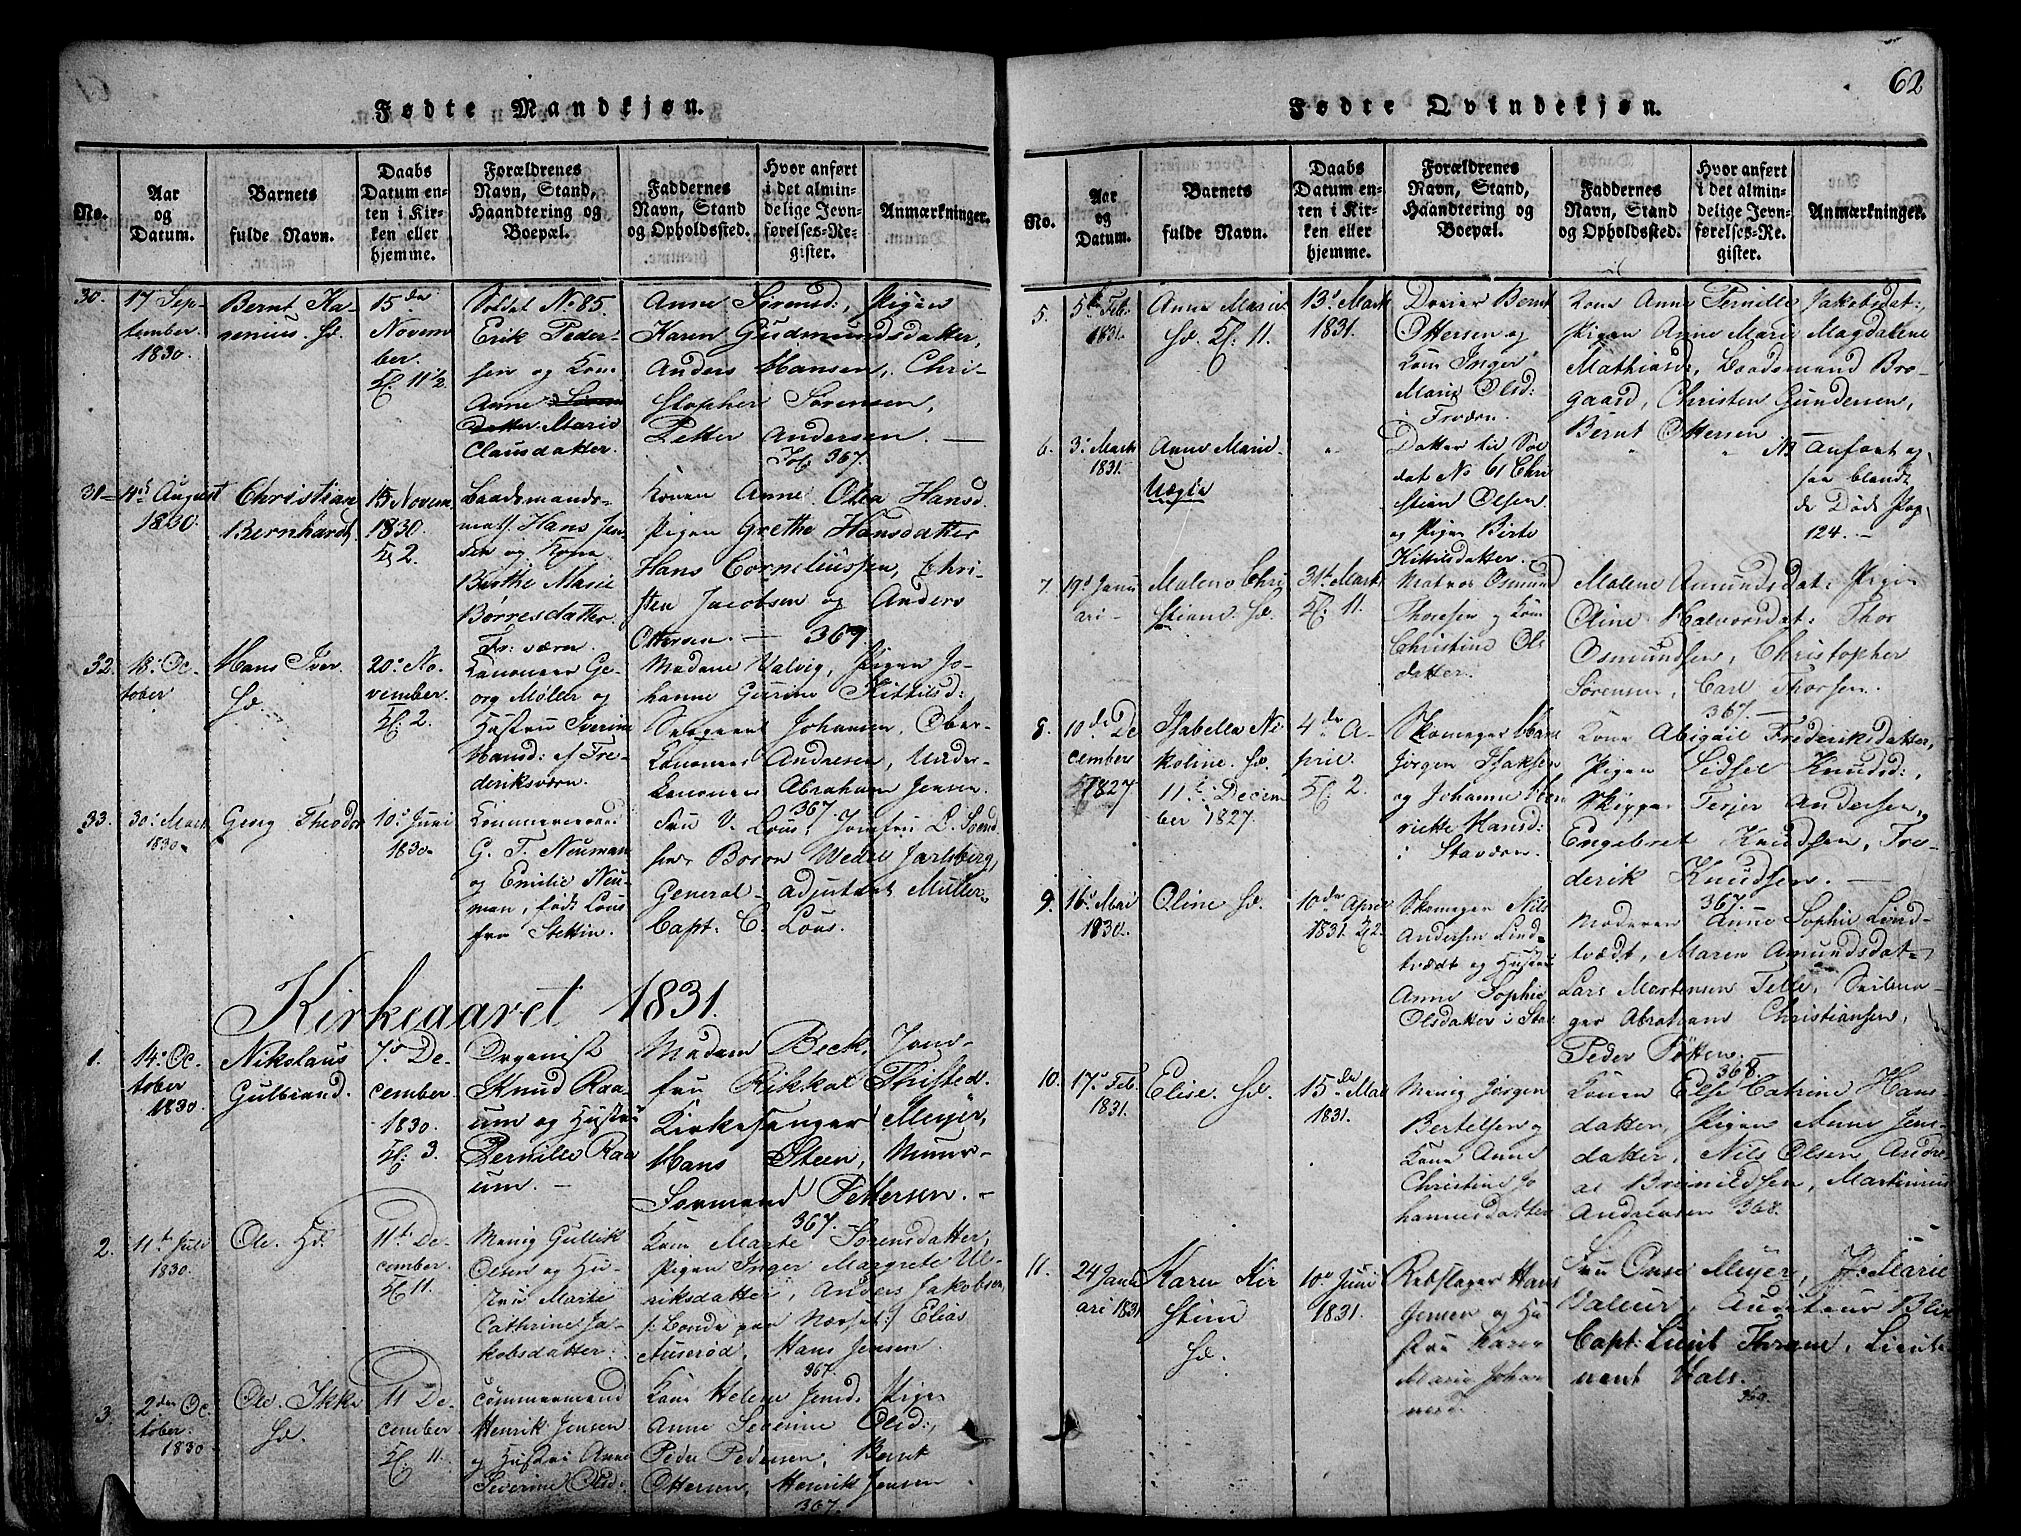 Fødte Mandkjøn.
No.
Aar
og
Datum.
Barnets
fulde Navn.
Daabs
Datum en-
ten i Kir-
ken eller
hjemme.
Forældrenes
Navn, Stand,
Haandtering og
Boepæl.
Faddernes
Navn, Stand
og Opholdssted.
Hvor anført
i det almin-
delige Jevn-
førelses-Re-
gister.
Anmærkninger.
30.
17 Sep-
tember.
1830.
Bernt Ka-
renius.
15de
Novem
ber.
Kl. 11 1/2
Soldat No 85.
Erik Peder-
sen og Kone
Anne
datter Marie
Clausdatter.
Anne Sørensd:, Pigen
Karen Gudmundsdatter,
Anders Hansen, Chri-
stopher Sørensen,
Petter Andersen. —
Fol. 367.
31
4de August
1830.
Christian
Bernhard
15 Novem.
1830.
Kl 2.
Baadsmands-
mat Hans Jen
sen og Kone
Birthe Marie
Børresdatter.
Fr: værn.
Konen Anne Olea Hansd.
Pigen Grethe Hansdatter
Hans Corneliussen, Chri-
sten Jacobsen og Anders
Ottersen. — 367.
32.
18. Oc-
tober
Hans Iver.
20. No-
vember.
Kl. 2.
Kanoneer Ge-
org Møller og
Hustru Iverine
Hansd: af Fre-
deriksværn.
Madame Valvig, Pigen Jo-
hanne Gurine Kittilsd:
Johansen, Over-
Kanoneer Andresen, Under-
Kanoneer Abraham Jensen
367
33.
30. Mart
1830.
Georg Theodor
10. Juni
1830.
G. T. Neuman
og Emilie Neu-
man, født Lous
fra Stettin.
Fru V. Lous, Jomfru L. Svend
sen, Baron Wedel Jarlsberg,
General-adjutant Müller,
Capt. C. Lous.
Kirkeaaret 1831.
1.
14. Oc
tober
1830.
Nikolaus
Gulbrand.
7. De-
cember
1830.
Kl. 3.
Organist
Knud Raa-
um og Hustru
Pernille Raa
um. —
Madam Beck, Jom-
fru Rikkal Thisted.
Kirkesanger Meyer,
Hans Steen, Muur-
Sormand Pettersen. —
367.
2.
11te Juli
1830.
Ole.
11te De-
cember.
Kl 11.
Menig Gullik
Olsen og Hu-
stru Marte
Cathrine Ja-
kobsdatter.
Kone Marte Sørensdatter,
Pigen Inger Margrete Ul-
riksdatter, Anders Jakobsen,
Elias
Auserød, Hans Jensen
367.
3.
2den Oc-
tober.
1830
Ole
11 De-
cember
Kl. 11.
Henrik Jensen
og Hustru Anne
Severine Olsd:
Kone Helene Jensd, Pigen
Anne Severine Olsd:,
Peder Pedersen, Bernt
Ottersen, Henrik Jensen
367.
62
Fødte Qvindekjøn.
No.
Aar
og
Datum.
Barnets
fulde Navn.
Daabs
Datum en-
ten i Kir-
ken eller
hjemme.
Forældrenes
Navn, Stand,
Haandtering og
Boepæl.
Faddernes
Navn, Stand
og Opholdssted.
Hvor anført
i det almin-
delige Jevn-
førelses-Re-
gister.
Anmærkninger.
5.
5te Feb.
1831.
Anne Marie
Kl: 11.
13. Mart
1831.
Bernt
Ottersen og
Kone Inger
Marie Olsd:
Kone Anne Pernille Jakobsdat:
Pigen Anne Marie Magdalene
Mathiasd:, Baadsmand Bro-
gaard, Christen Gundersen,
Bernt Ottersen
6.
3. Mart
1831.
Anne Marie
Uægte
Datter til Sol
dat No 61 Chri
stian Olsen
og Pigen Birte
Kittilsdatter.
NB Anført og
saa blandt
de Døde Pag
124. —
7.
19. Janu
ari —
Malene Chri
stiane.
31te Mart
Kl. 11.
Matros Osmund
Thorsen og Kone
Christine Ols
datter.
Malene Amundsdat: Pigen
Oline Halvorsdat: Thor
Osmundsen, Christopher
Sørensen, Carl Thorsen.
367. —
8.
10de De
cember
1827
Isabella Ni-
koline.
11. Decem
ber 1827.
4de A-
pril.
Kl. 2.
Skomager Hans
Jørgen Isaksen
og Johanne Hen
riette Hansd:
i Stavern.
Kone Abigail Frederiksdatter,
Pigen Sidsel Knudsd:,
Skipper Terjer Andersen,
Engebret Knudsen, Fre-
derik Knudsen. —
367.
9.
16. Mai
1830.
Oline
10de April
1831. Kl 2.
Skomager Nils
Andersen Lind-
trædt og Hustru
Anne Sophie
Olsdatter i Stav
Moderen Anne Sophie Lind-
tvædt, Maren Amundsdat-
Lars Mortensen Telle,
Abraham Christiansen,
Peder
368.
10.
17. Feb.
1831.
Elise.
15de Mai
1831.
Menig Jørgen
Bertelsen og
Kone Anne
Christine Jo
hannesdatter
Konen Else Catrine Hans
datter, Pigen Anne Jens-
datter, Nils Olsen, Andre-
as Brynildsen, Martinius
Andreasen 368.
11.
24 Janu
ari 1831
Karen Kir
stine
10. Juni
1831.
Rebslager Hans
Jensen og Hu
stru Karen
Marie Johan
Fru Meyer, J: Marie
Valeur, Auditeur Blix
Capt: Lieut Thrane, Lieute
nant Hals.
369.